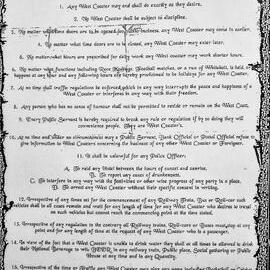 1. Any West Coaster may and shall do exactly as they desire.
2. No West Coaster shall be subject to discipline.
3. No matter what time doors are to be opened for public business, any West Coaster may come in earlier.
4. No matter what time doors are to be closed, any West Coaster may enter later.
5. No matter what hours are prescribed for duty work any West Coaster may work shorter hours.
6. No matter what functions including Race Holidays (Football matches, or a run of Whitebait), is held or
happens at any hour and any following hours are hereby proclaimed to be holidays for West Coasters.
7. At no time shall traffic regulations be enforced which in any way interrupts the peace and happiness of a
West Coaster or interferes in any way with their freedom.
8. Any person who has no sense of humour shall not be permitted to reside or remain on the West Coast.
9. Every Public Servant is hereby required to break any rule or regulation if by so doing they will
convenience people. They are West Coasters.
10. At no time and under no circumstances may a Public Servant, Bank Official or Postal Official refuse to
give information to West Coasters concerning the business of any other West Coaster or Foreigner.
11. It shall be unlawful for any Police Officer:
A. To raid any Hotel between the hours of sunset and sunrise.
B. To report any case of drunkenness.
C. To interfere in any way with the participants or other wise progress of any party in a place.
D. To arrest any West Coaster without their specific consent in writing.
12. Irrespective of any times set for the commencement of any Railway Trains, Bus or Rail-car such
vehicles shall in all cases remain and wait for any length of time for any West Coaster who desires to travel
on such vehicles but cannot reach the commencing point at the time stated.
13. Irrespective of any regulation to the contrary all Railway trains, Rail-cars or Buses meanging at any
place and for any length of time at the request of any West Coaster.
14. In view of the fact that a West Coaster is unable to drink water they shall at all times be allowed to drink
their National beverage to wit: BEER, in any railway train, Public Place, Special gathering or Public
House at any time and in any Quantity.
15. Irrespective of the time or